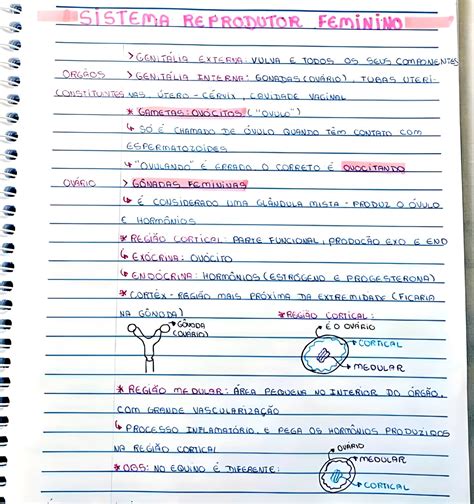 SISTEMA REPRODUTOR FEMININO
> GENITÁLIA EXTERNA: VULVA E TODOS OS SEUS COMPONENTES
ORGÃOS > GENITÁLIA INTERNA: GONADAS (OVÁRIO), TUBAS UTERI-
CONSTITUINTES NAS, ÚTERO - CÉRVIX, CAVIDADE VAGINAL
* GAMETAS: OVÓCITOS ("OVULO")
↳ SÓ É CHAMADO DE ÓVULO QUANDO TÊM CONTATO COM
ESPERMATOZOIDES
↳ "OVULANDO" É ERRADO, O CORRETO É OVOCITANDO
OVÁRIO > GÔNADAS FEMININAS
↳ É CONSIDERADO UMA GLÂNDULA MISTA - PRODUZ O ÓVULO
E HORMÔNIOS
* REGIÃO CORTICAL: PARTE FUNCIONAL, PRODUÇÃO EXO E END
↳ EXÓCRINA: OVÓCITO
↳ ENDÓCRINA: HORMÔNIOS (ESTRÓGENO E PROGESTERONA)
* CORTÉX - REGIÃO MAIS PRÓXIMA DA EXTREMIDADE (FICARIA
NA GÔNODA) * REGIÃO CORTICAL:
GÔNODA (OVÁRIO)
É O OVÁRIO
CORTICAL
MEDULAR
* REGIÃO MEDULAR: ÁREA PEQUENA NO INTERIOR DO ÓRGÃO,
COM GRANDE VASCULARIZAÇÃO
↳ PROCESSO INFLAMATÓRIO, E PEGA OS HORMÔNIOS PRODUZIDOS
NA REGIÃO CORTICAL
* OBS: NO EQUINO É DIFERENTE:
OVÁRIO
MEDULAR
CORTICAL